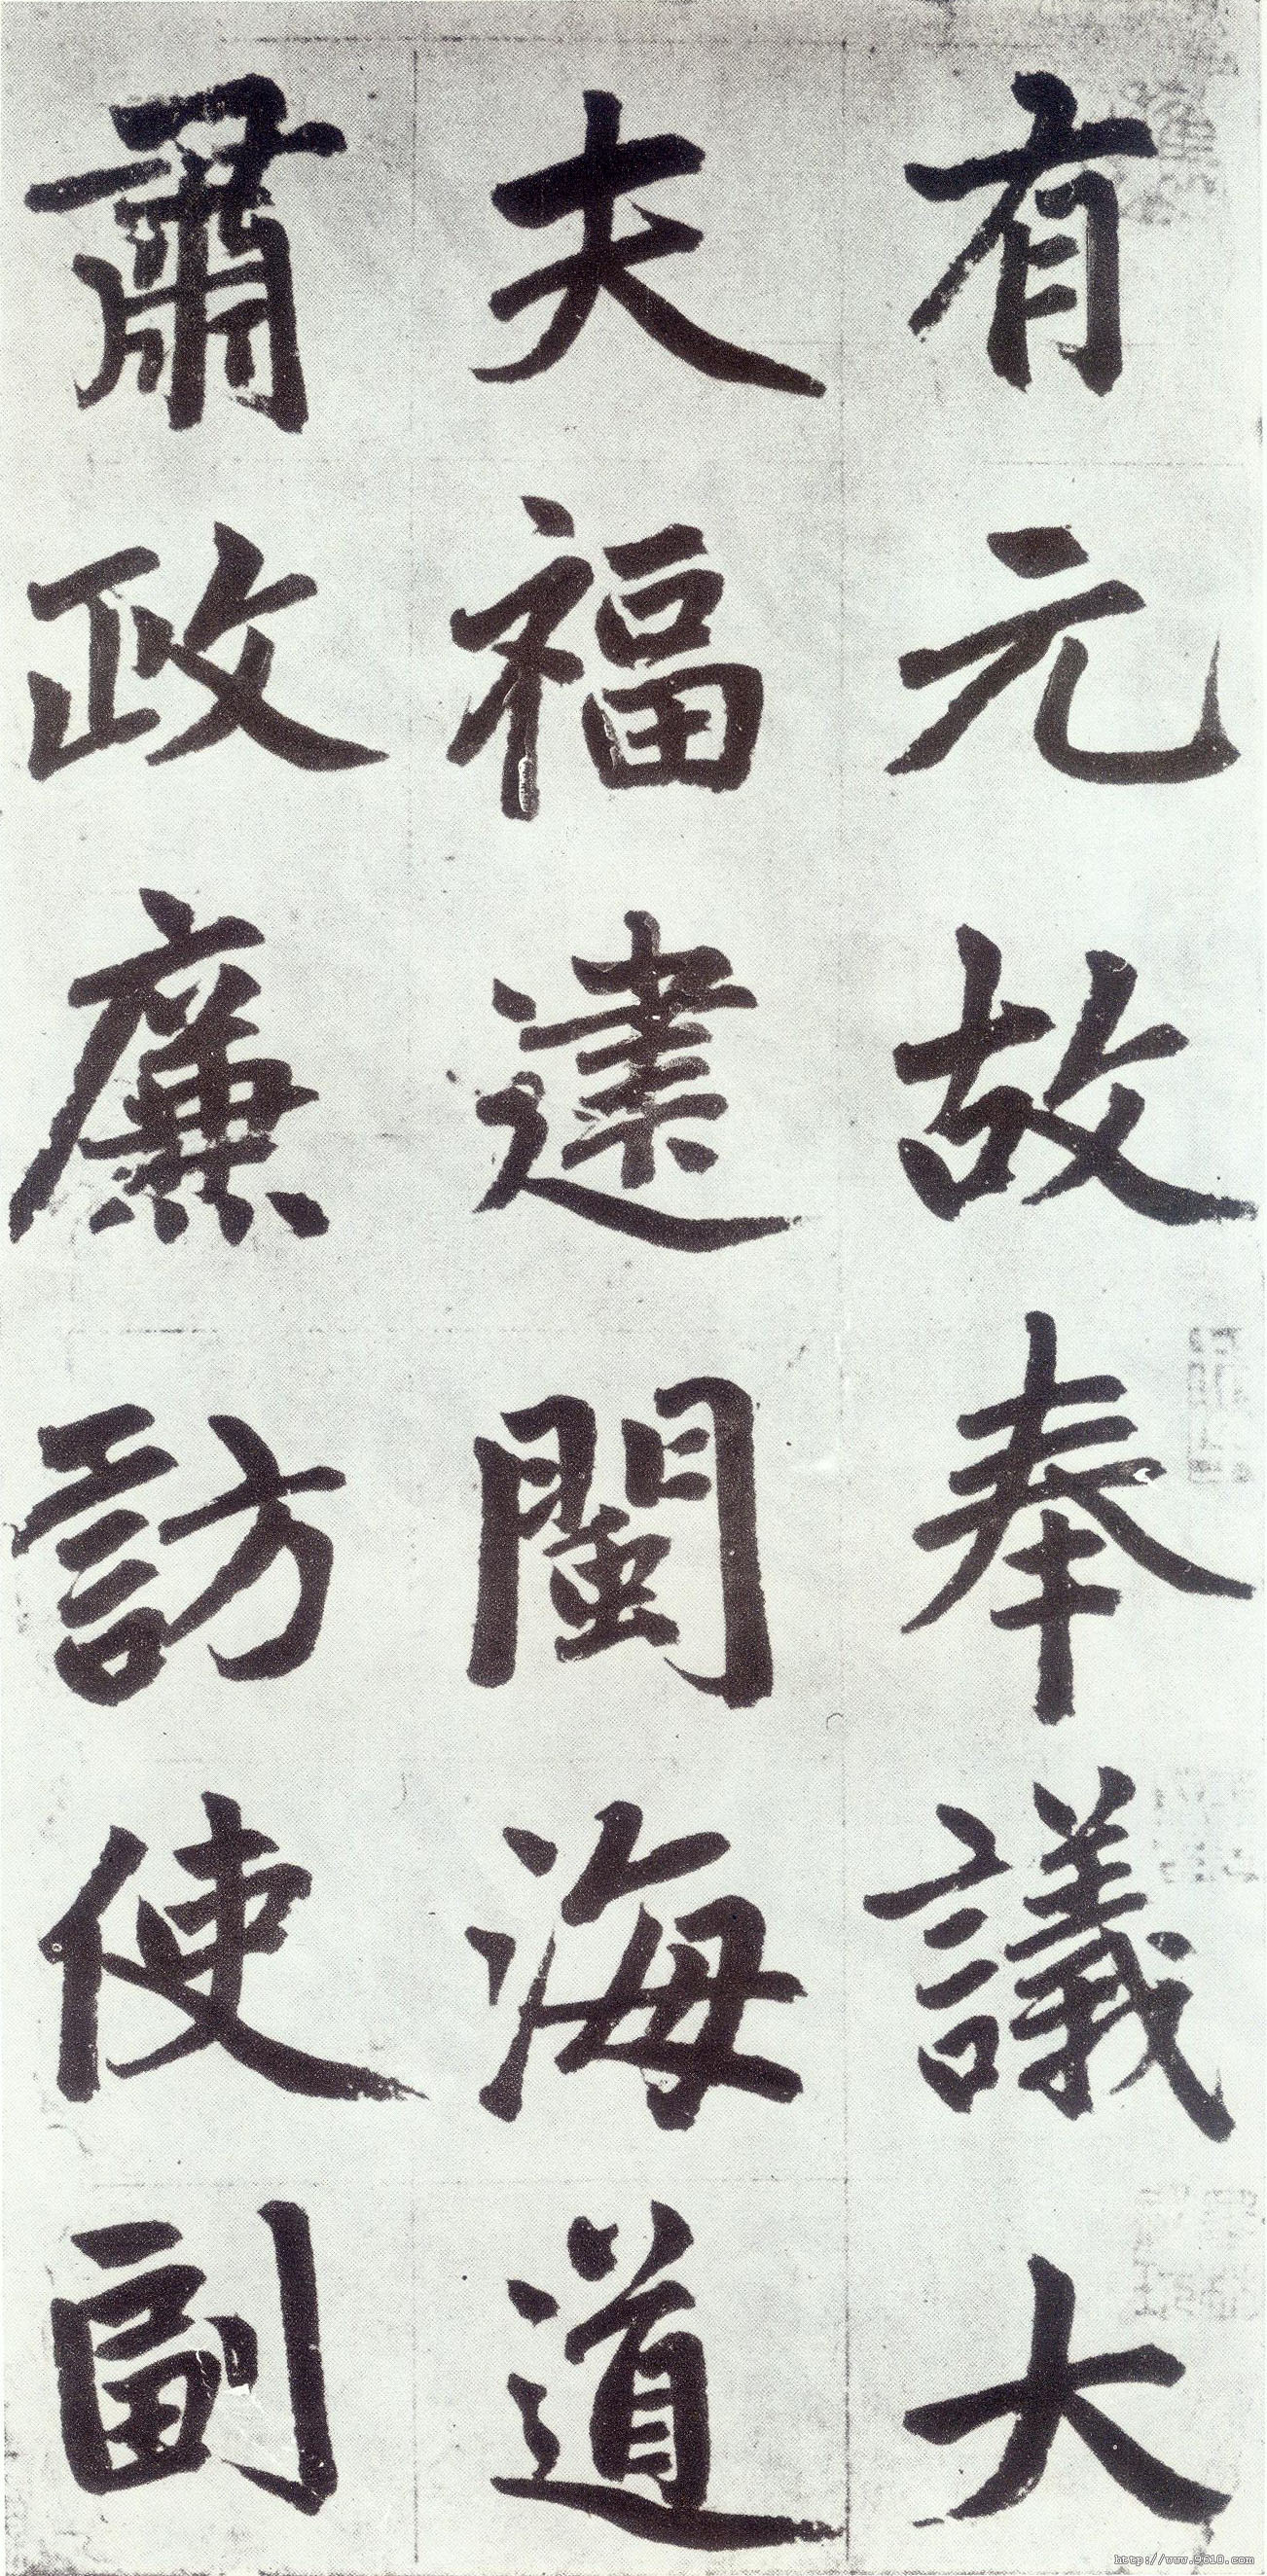 有元故奉議大
夫福建閩海道
肅政廉訪使副
http://www.9610.com